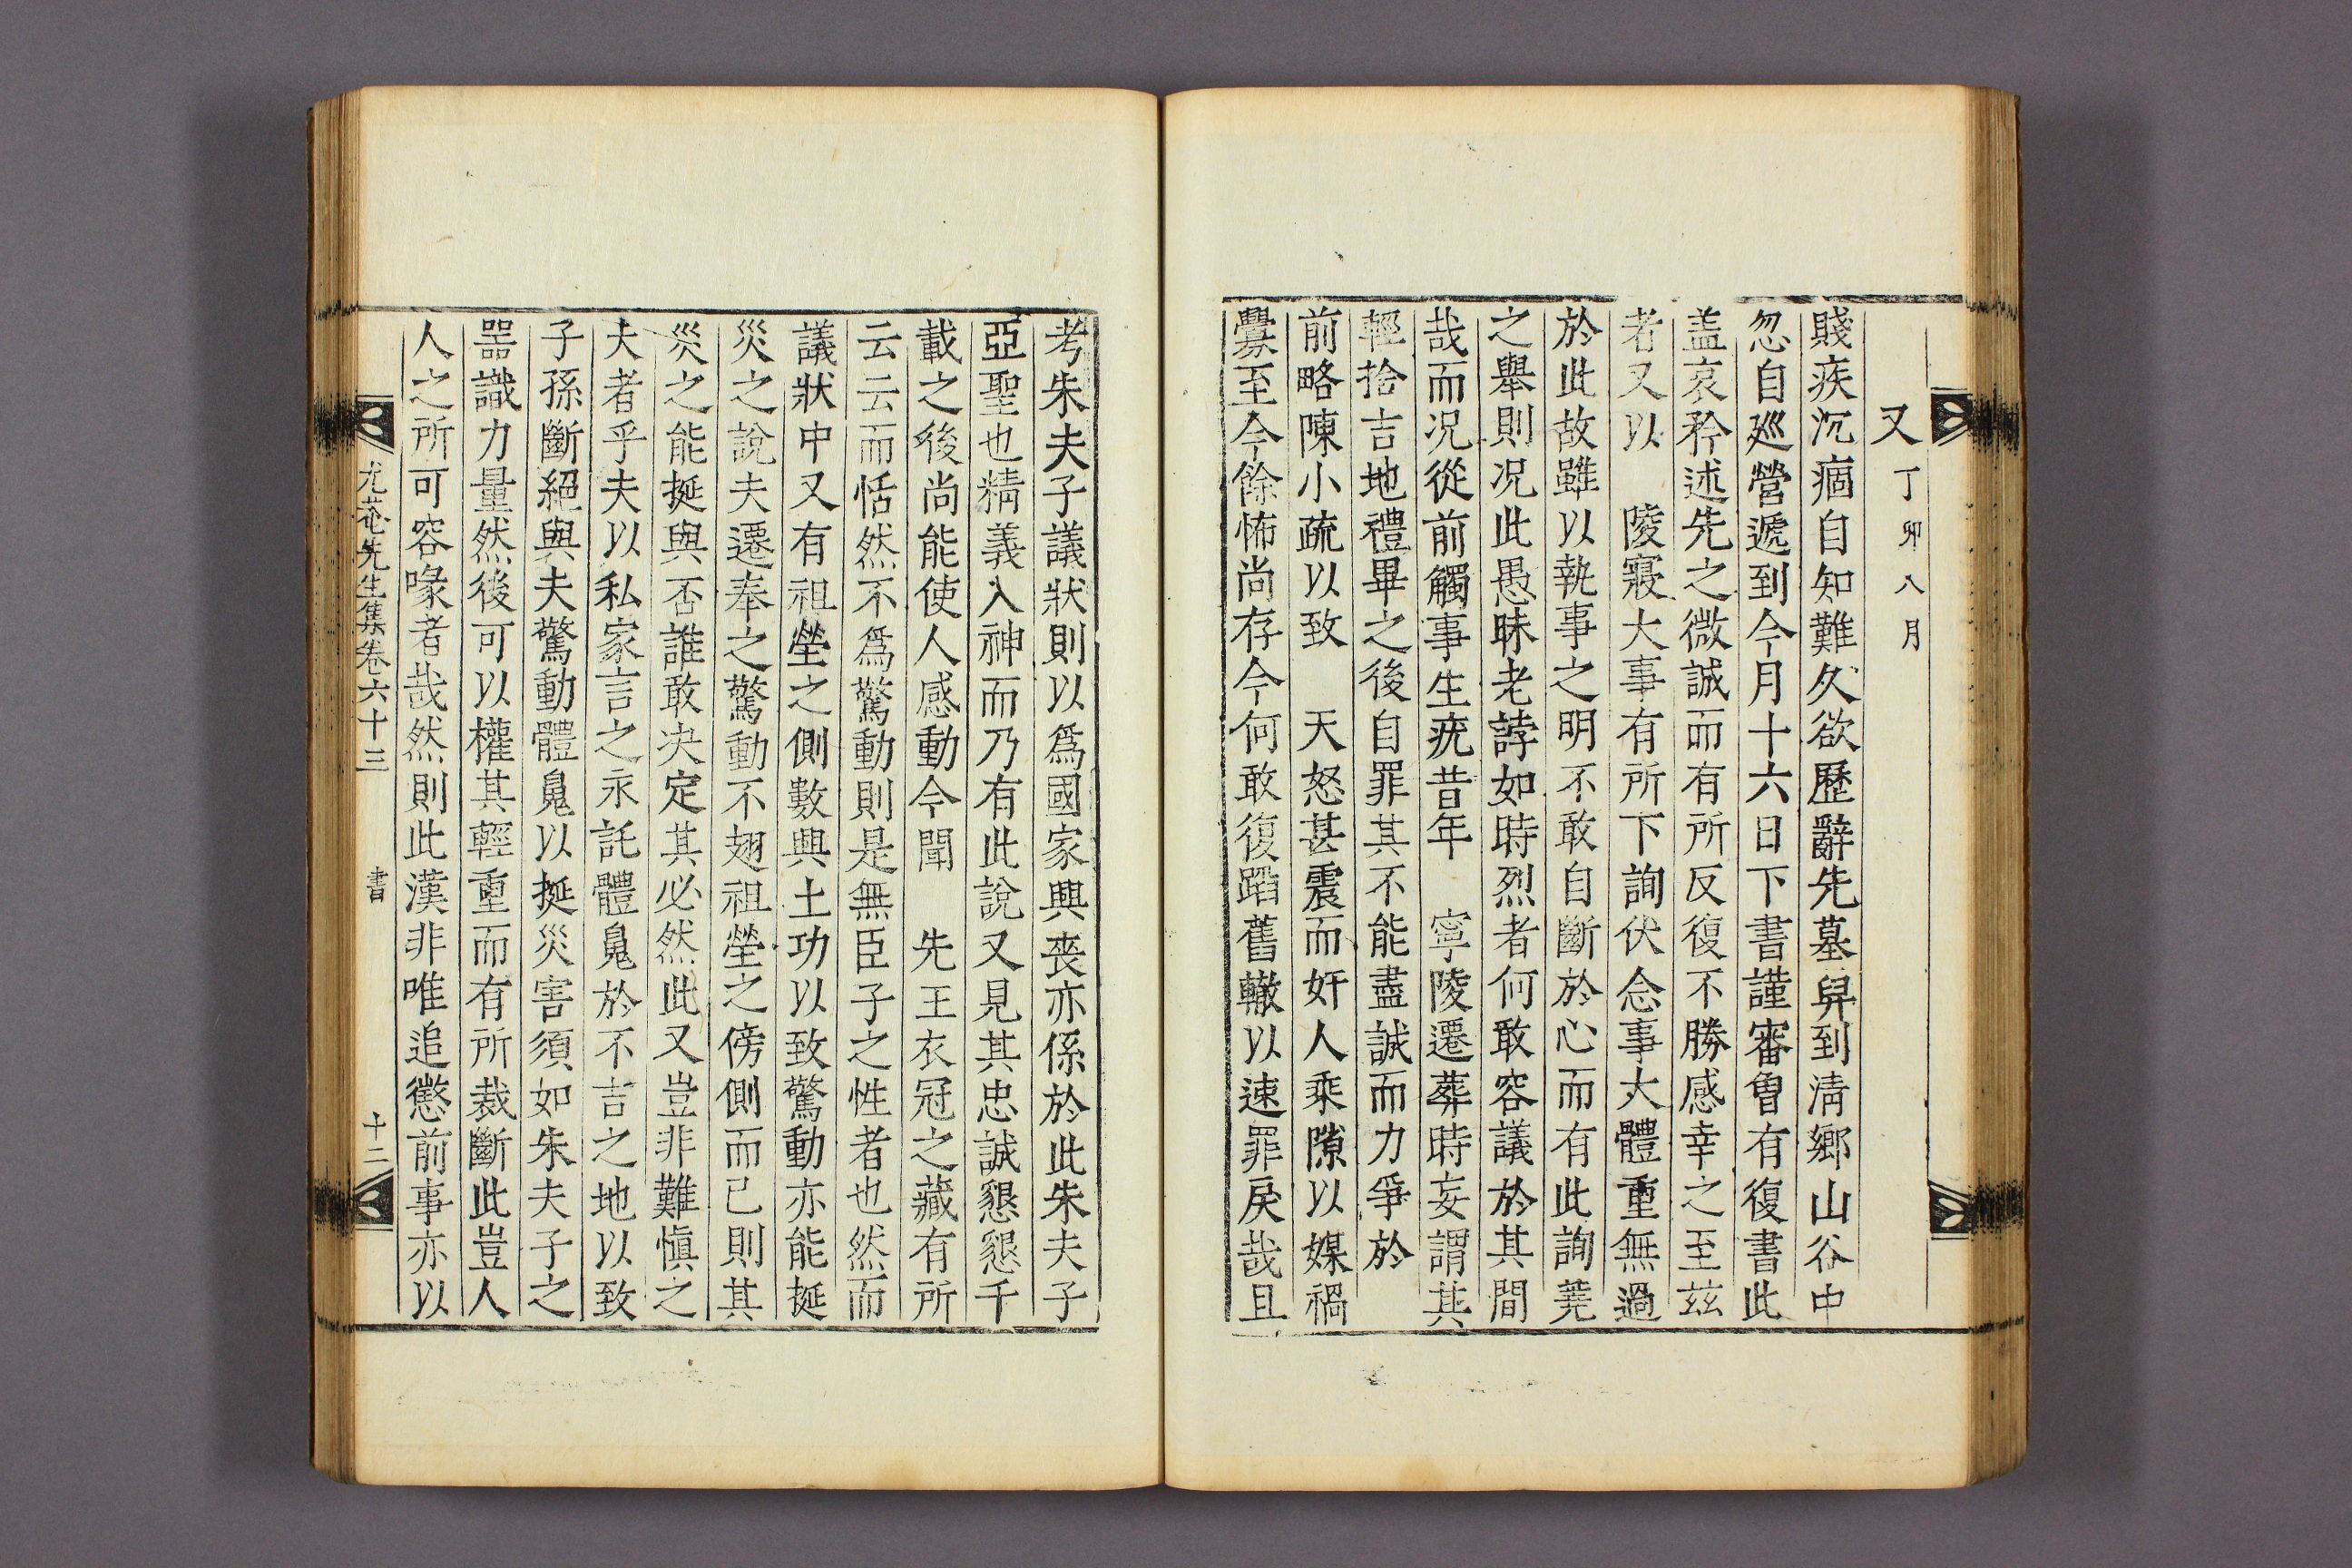 又 丁卯八月
賤疾沉痼自知難久欲歷辭先墓舁到淸鄕山谷中
忽自巡營遞到今月十六日下書謹審曾有復書此
盖哀矜述先之微誠而有所反復不勝感幸之至玆
者又以 陵寢大事有所下詢伏念事大體重無過
於此故雖以執事之明不敢自斷於心而有此詢蕘
之擧則况此愚昧老誖如時烈者何敢容議於其間
哉而况從前觸事生疣昔年 寧陵遷葬時妄謂其
輕捨吉地禮畢之後自罪其不能盡誠而力爭於
前略陳小疏以致 天怒甚震而奸人乘隙以媒禍
釁至今餘怖尙存今何敢復蹈舊轍以速罪戾哉且
考朱夫子議狀則以爲國家興喪亦係於此朱夫子
亞聖也精義入神而乃有此說又見其忠誠懇懇千
載之後尙能使人感動今聞 先王衣冠之藏有所
云云而恬然不爲驚動則是無臣子之性者也然而
議狀中又有祖塋之側數興土功以致驚動亦能挻
災之說夫遷奉之驚動不翅祖塋之傍側而已則其
災之能挻與否誰敢决定其必然此又豈非難愼之
大者乎夫以私家言之永託體魄於不吉之地以致
子孫斷絕與夫驚動體魄以挻災害須如朱夫子之
噐識力量然後可以權其輕重而有所裁斷此豈人
人之所可容喙者哉然則此漢非唯追懲前事亦以
尤菴先生集卷六十三 書 十二